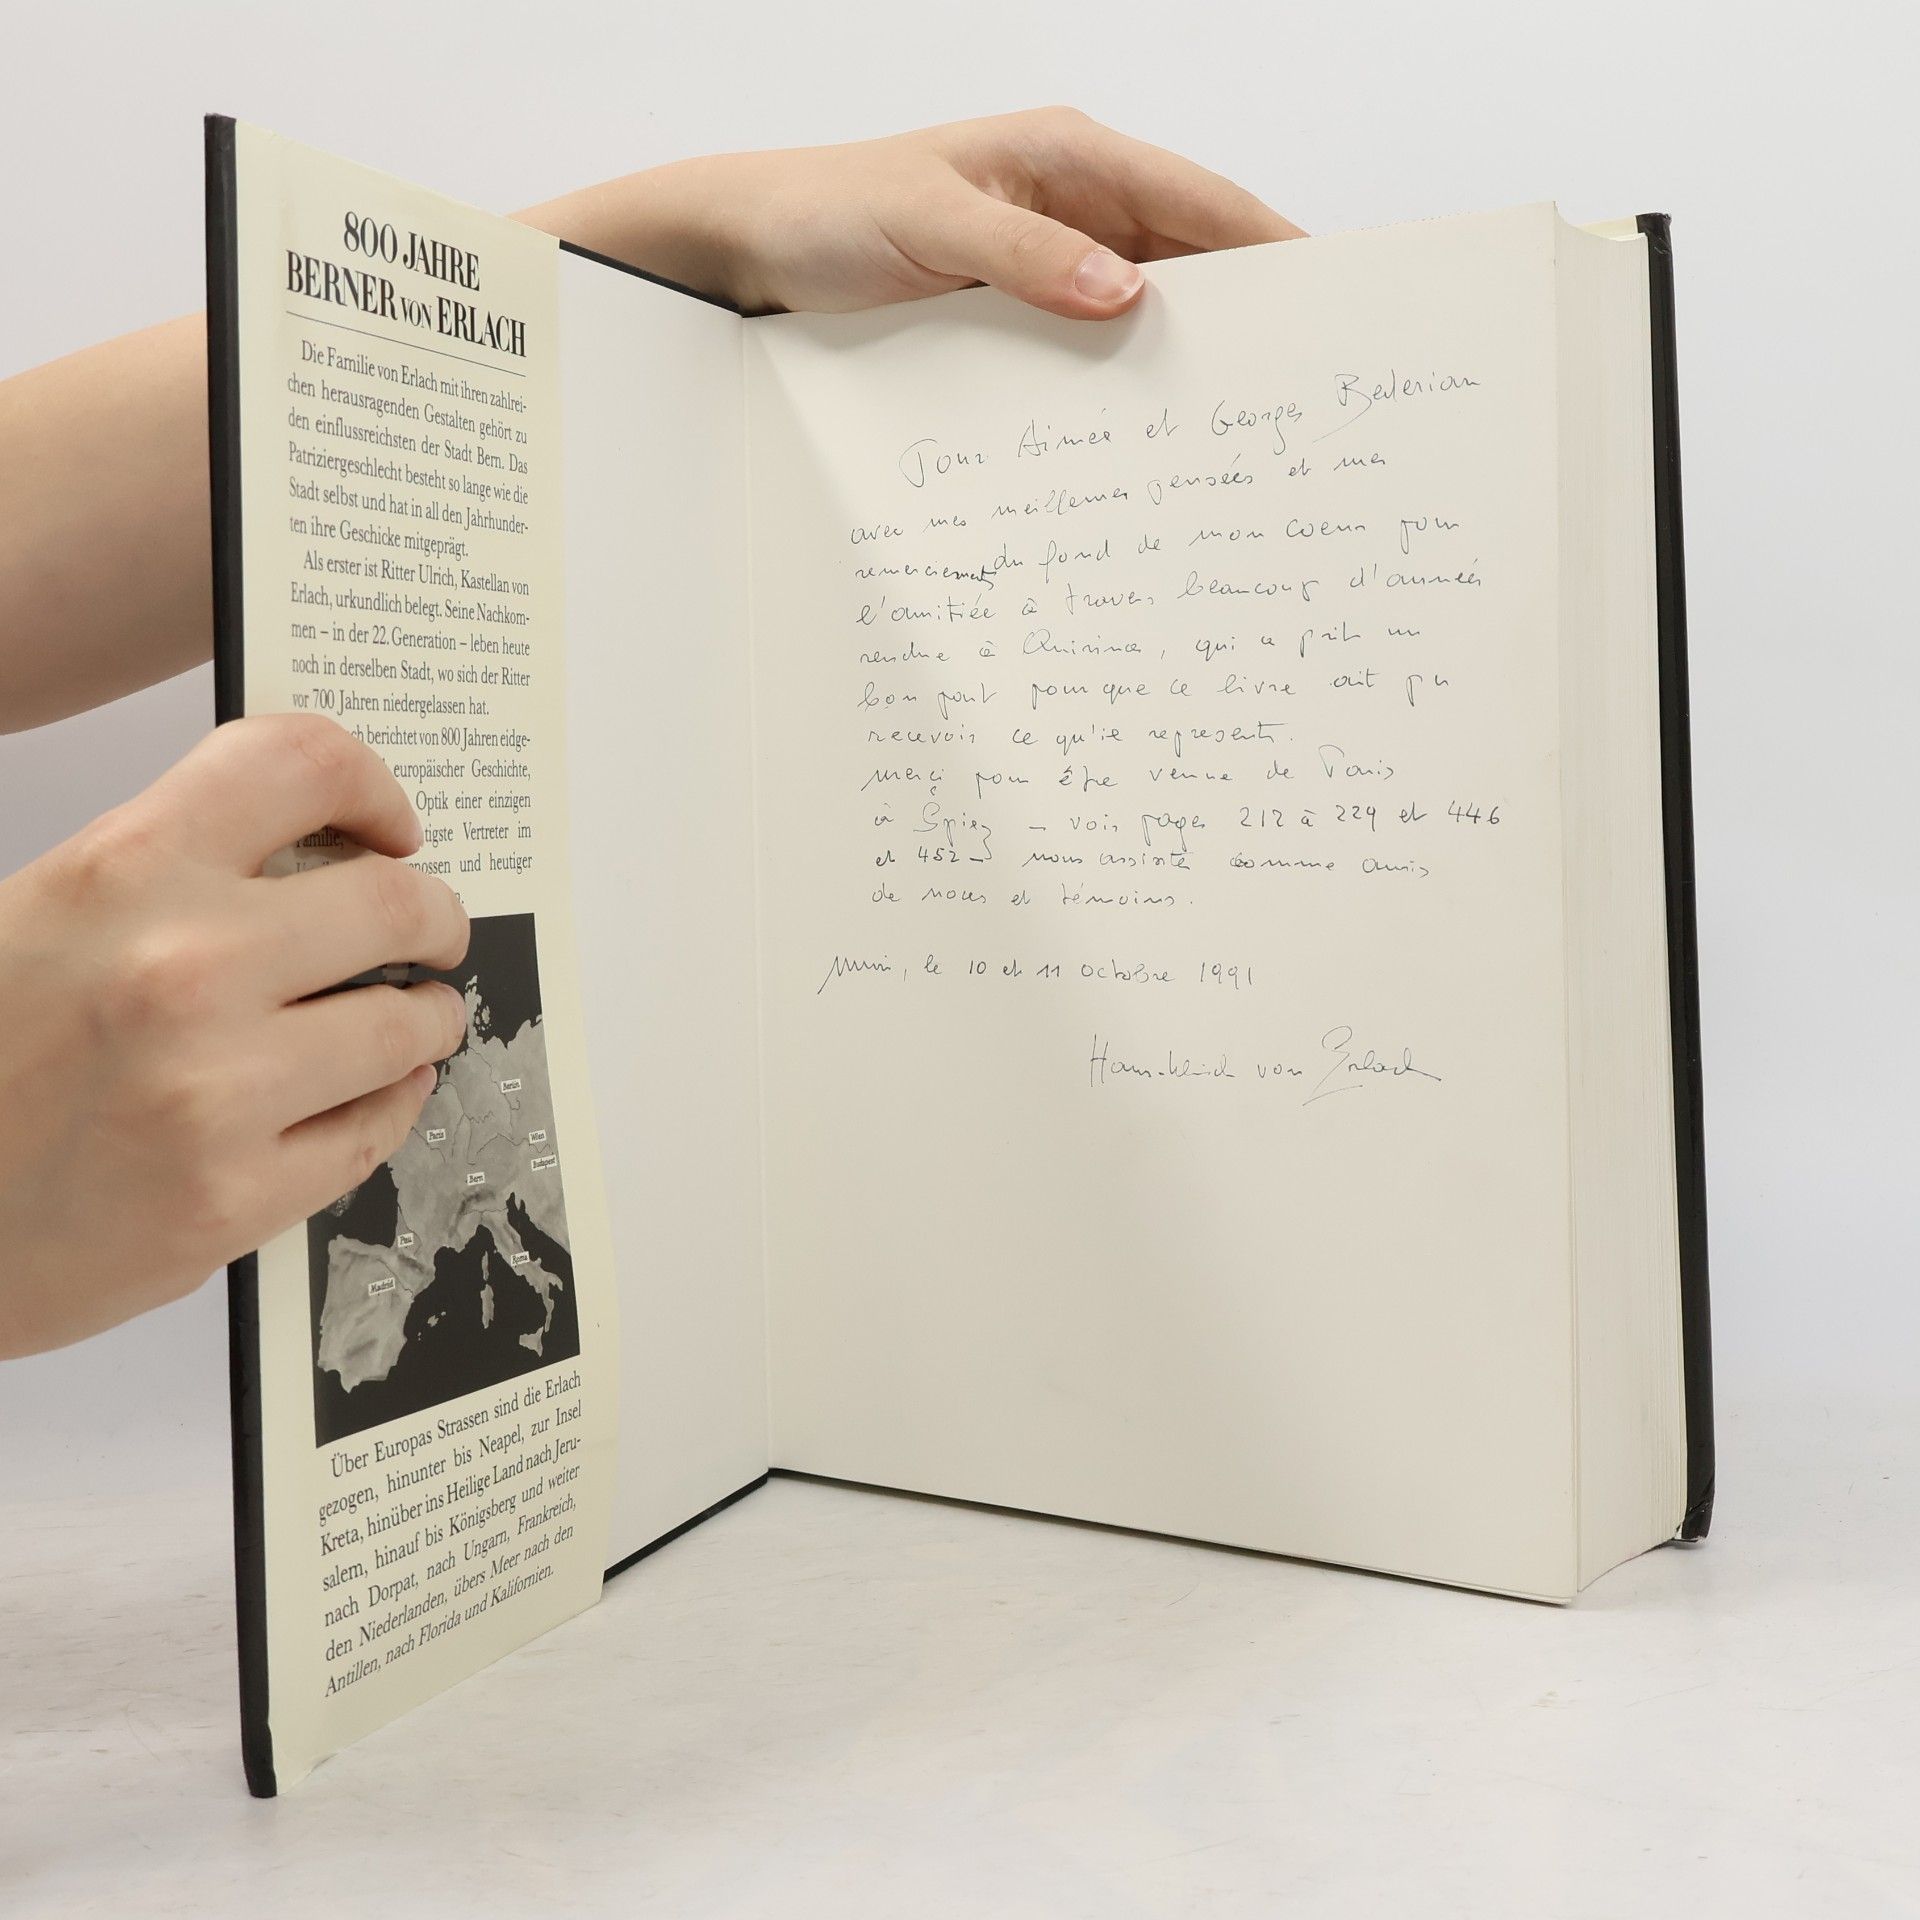 800 JAHRE
BERNER VON ERLACH
Die Familie von Erlach mit ihren zahlrei-
chen herausragenden Gestalten gehört zu
den einflussreichsten der Stadt Bern. Das
Patriziergeschlecht besteht so lange wie die
Stadt selbst und hat in all den Jahrhunder-
ten ihre Geschicke mitgeprägt.
Als erster ist Ritter Ulrich, Kastellan von
Erlach, urkundlich belegt. Seine Nachkom-
men – in der 22. Generation – leben heute
noch in derselben Stadt, wo sich der Ritter
vor 700 Jahren niedergelassen hat.
ch berichtet von 800 Jahren eidge-
europäischer Geschichte,
Optik einer einzigen
Familie, tigste Vertreter im
nossen und heutiger
n.
Berlin
Paris
Wien
Budapest
Bern
Pau
Roma
Madrid
Über Europas Strassen sind die Erlach
gezogen, hinunter bis Neapel, zur Insel
Kreta, hinüber ins Heilige Land nach Jeru-
salem, hinauf bis Königsberg und weiter
nach Dorpat, nach Ungarn, Frankreich,
den Niederlanden, übers Meer nach den
Antillen, nach Florida und Kalifornien.
Pour Aimée et Georges Bederian
avec mes meilleures pensées et mes
remerciements du fond de mon coeur pour
l'amitiée à travers beaucoup d'années
rendue à Quirina, qui a prit un
bon part pour que ce livre ait pu
recevoir ce qu'il represente.
merci pour être venue de Paris
à Spiez – voir pages 212 à 229 et 446
et 452 – nous assister comme amis
de noces et témoins.
Muri, le 10 et 11 octobre 1991
Hans-Ulrich von Erlach